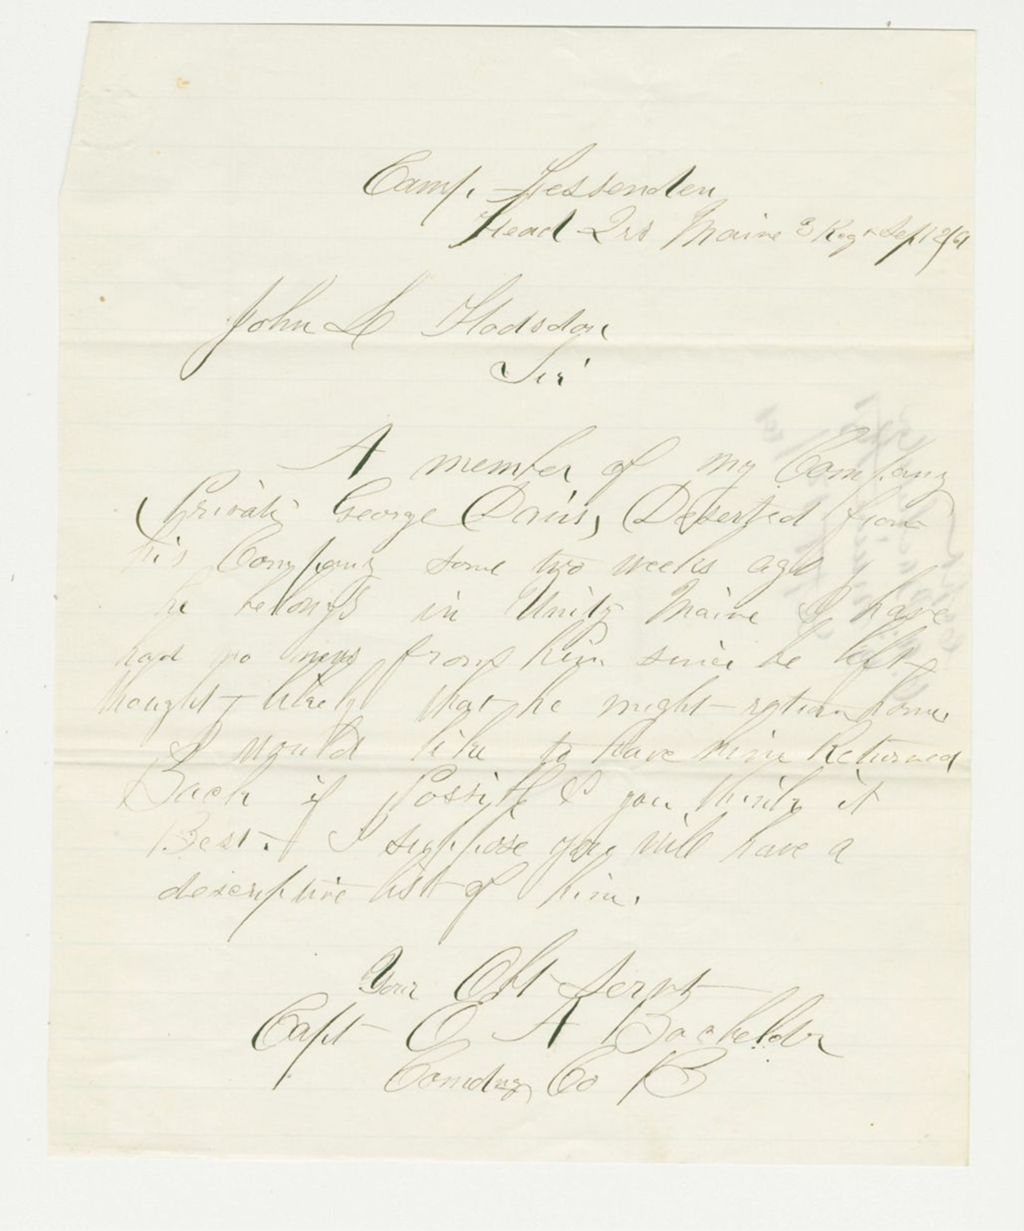 Camp Fessenden
Head Qrs Maine 3 Reg Sep 12/61
John L Hodsdon
Sir
A member of my Company
Private George Davis, Deserted from
his Company some two weeks ago
he belongs in Unity Maine I have
had no news from him since he left
thought likely that he might return home
I would like to have him Returned
Back if Possible & you think it
Best. I suppose you will have a
descriptive list of him.
Your Obt Servt
Capt E A Bachelder
Comdng Co B